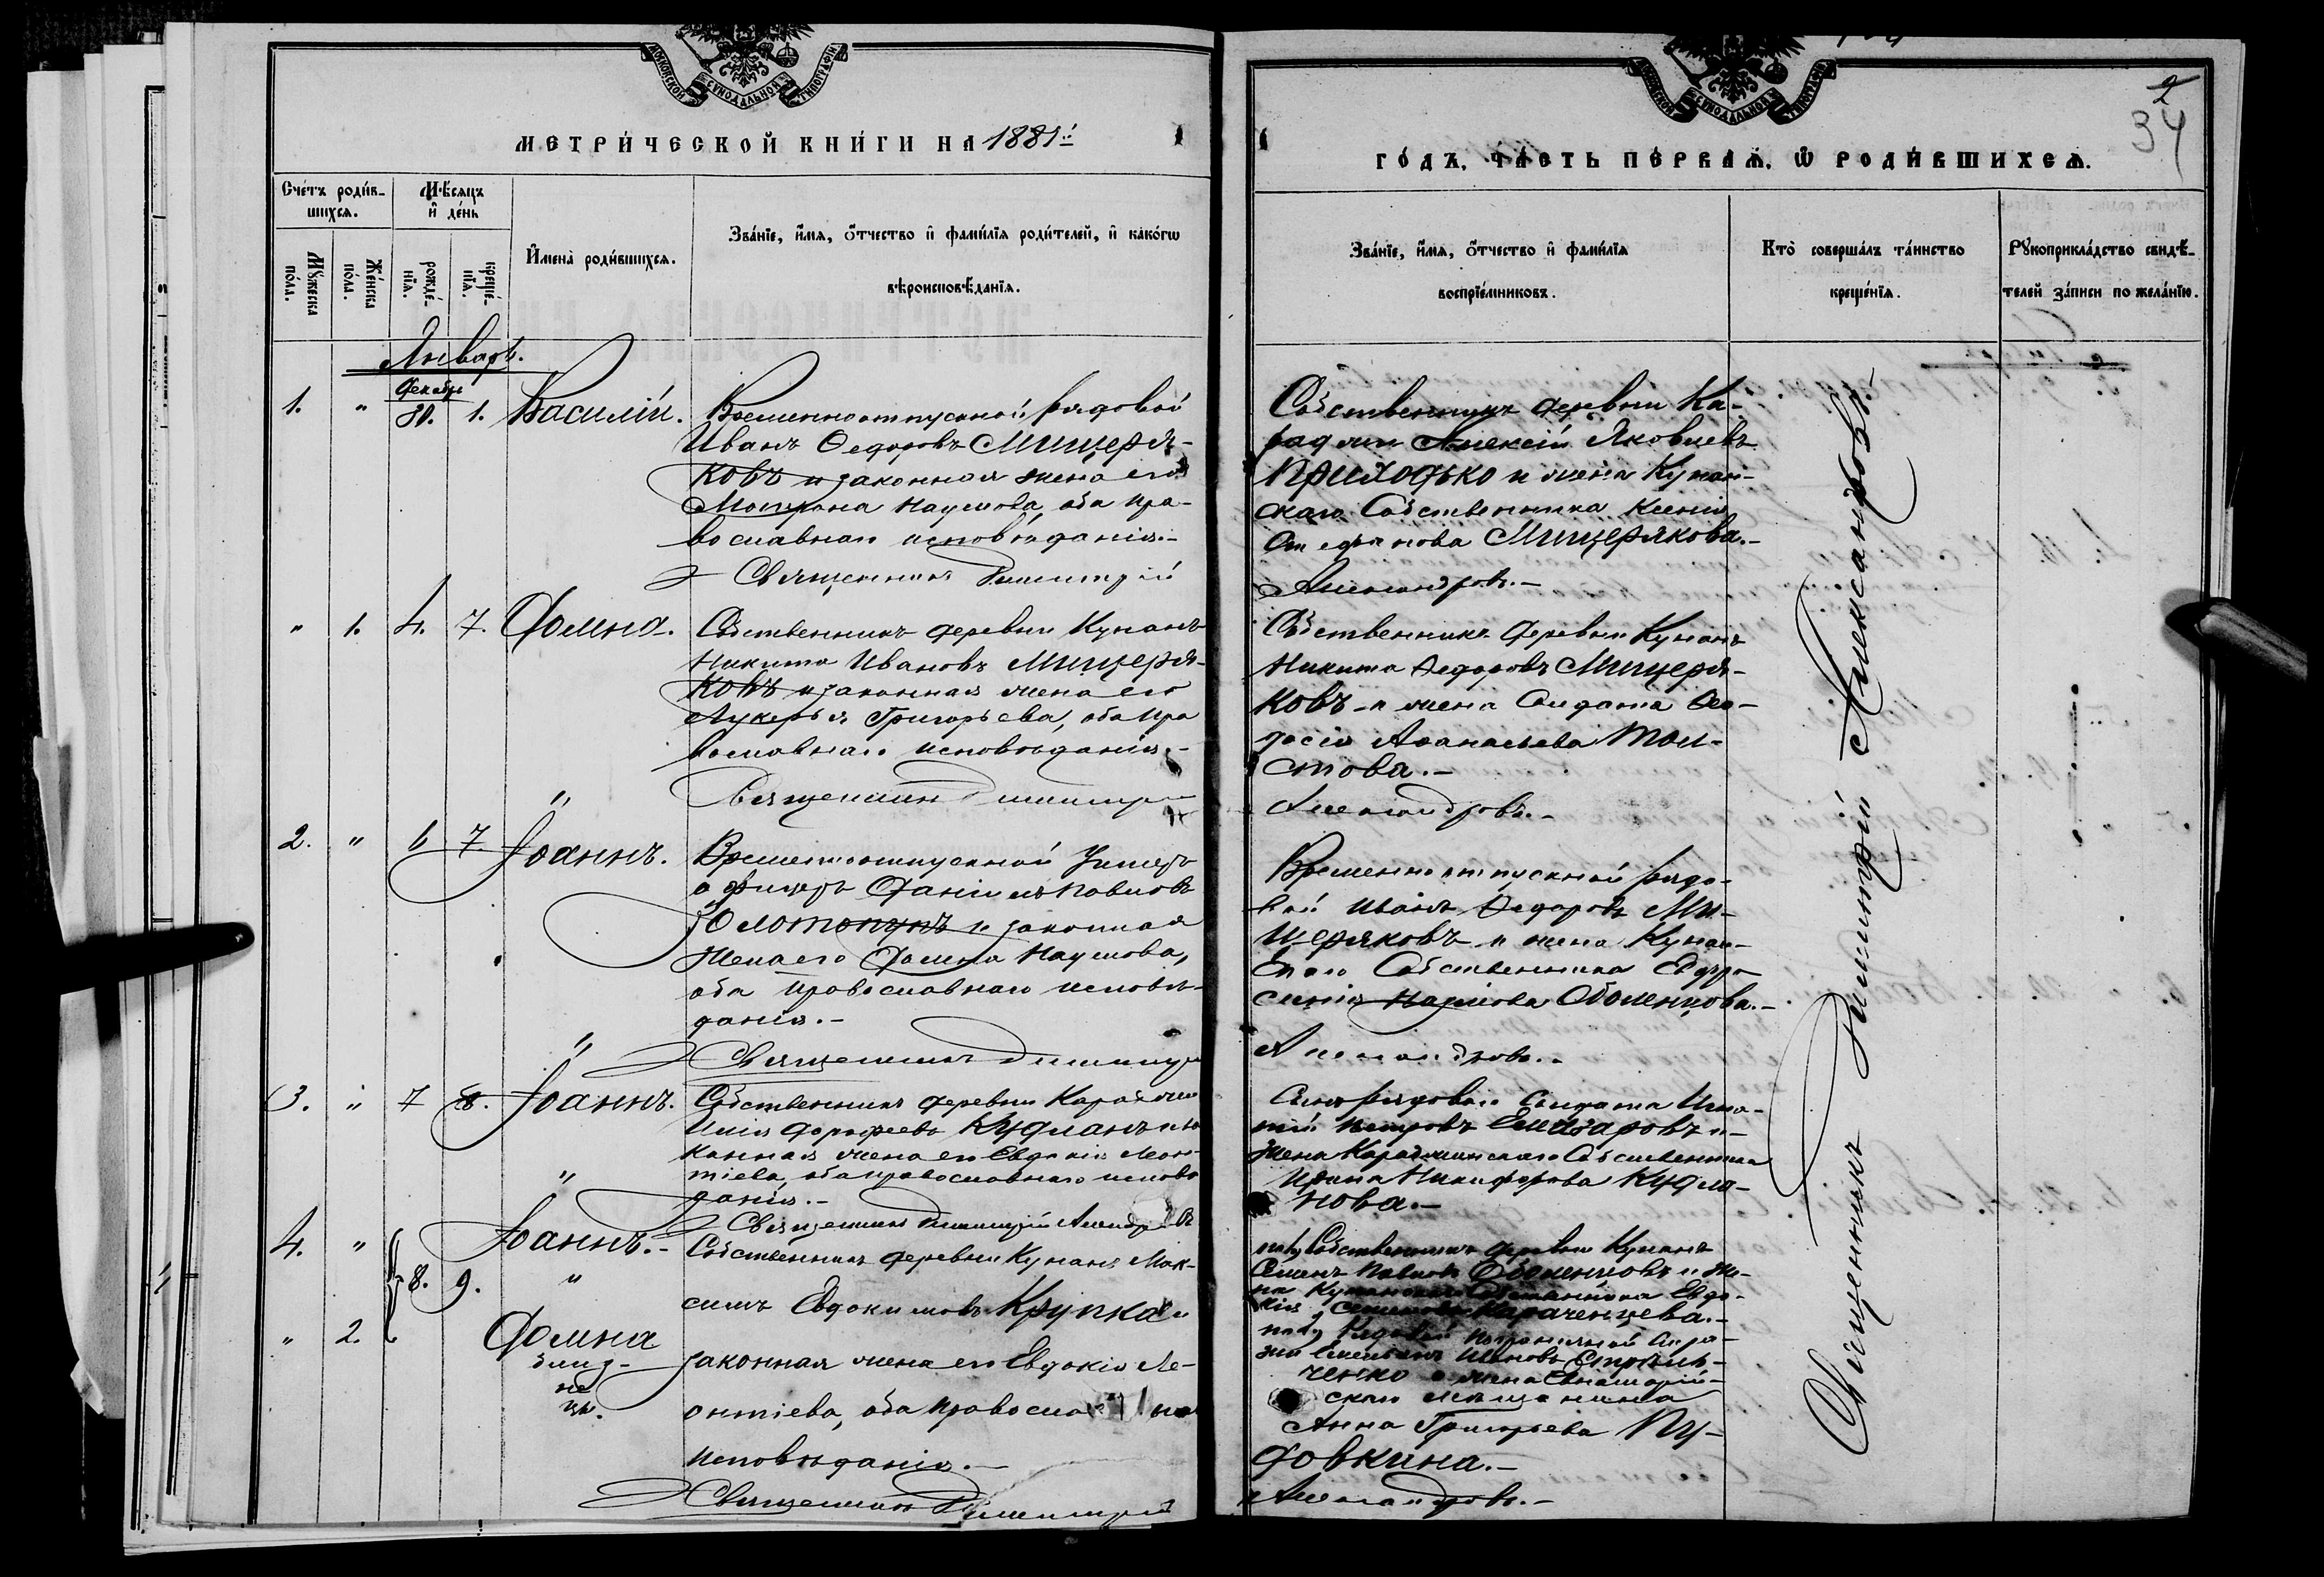 МОСКОВСКОЙ СѴНОДАЛЬНОЙ ТИПОГРАФІИ
МЕТРИ́ЧЕСКОЙ КНИ́ГИ НА 1881й
Сче́тъ роди́в-
шихся.
Мѣ́сяцъ
и҆ де́нь
Мꙋ́жеска
по́ла.
Же́нска
по́ла.
рожде́-
нїя.
креще́-
нїя.
И҆мена̀ роди́вшихся.
Зва́нїе, и҆́мя, ѻ҆́тчество и҆ фами́лїя роди́телей, и҆ како́гѡ
вѣроисповѣ́данїя.
Январь.
Декабр
1. " 30. 1. Василій. Временноотпускной рядовой
Иванъ Ѳедоровъ Мищеря-
ковъ и законная жена его
Матрона Наумова, оба пра-
вославнаго исповѣданія.-
Священникъ Димитрій
" 1. 4. 7. Домна. Собственникъ деревни Кунанъ
Никита Ивановъ Мищеря-
ковъ и законная жена его
Лукерья Григорьева, оба пра
вославнаго исповѣданія.-
Священник Димитрі
2. " 6 7 Іоаннъ. Временноотпускной Унтеръ
офицеръ Даніилъ Павловъ
Золотопупъ и законная
жена его Домна Наумова,
оба православнаго исповѣ-
данія.-
Священникъ Димитрі
3. " 7 8. Іоаннъ. Собственникъ деревни
Илія Дорофеевъ Кудланъ и за
конная жена его Евдокія Леон-
тіева, оба православнаго исповѣ
данія.-
Священникъ Димитрій
4. " 8. 9. Іоаннъ.- Собственникъ деревни Кунанъ Мак-
симъ Евдокимовъ Крупка и
" 2. Домна
близ-
не
цы.
законная жена его Евдокія Ле-
онтіева, оба
исповѣданія.-
Священник Димитрій
МОСКОВСКОЙ СѴНОДАЛЬНОЙ ТИПОГРАФІИ
2
34
ГО́ДЪ, ЧА́СТЬ ПЕ́РВАЯ, Ѡ҆ РОДИ́ВШИХСЯ.
Зва́нїе, и҆́мя, ѻ҆́тчество и҆ фами́лїя
воспрїе́мниковъ.
Кто̀ соверша́лъ та́инство
креще́нїя.
Рꙋкоприкла́дство свидѣ́-
телей за́писи по жела́нїю.
Собственникъ деревни Ка-
Алексій Яковлевъ
Приходько и жена Кунан-
скаго Собственника Ксенія
Мищерякова.-
Александровъ.-
Собственникъ деревни Кунанъ
Никита Ѳедоровъ Мищеря-
ковъ и жена Солдата Ѳео-
досія Аѳанасьева Тол-
стова.-
Александровъ.-
Временноотпускной рядо-
вой Иванъ Ѳедоровъ Ми-
щеряковъ и жена Кунан-
скаго Собственника Евфро-
синія Наумова Оболенцова.-
Александровъ.-
Солдата Игна-
тій Петровъ Елизаровъ и-
жена Собственника
Ирина Никифорова Кудла-
нова.-
Собственникъ деревни Кунанъ
Семенъ Павловъ Оболенцовъ и же-
на Кунанскаго Собственника Евдо-
кія Семенова Караченцева.-
Рядовой Пограничной Стра-
жи Ивановъ Стрѣль-
ченко и жена Евпаторій-
скаго мѣщанина
Анна Григорьева Пу-
довкина.-
Александровъ.-
Священникъ Димитрій Александровъ.-